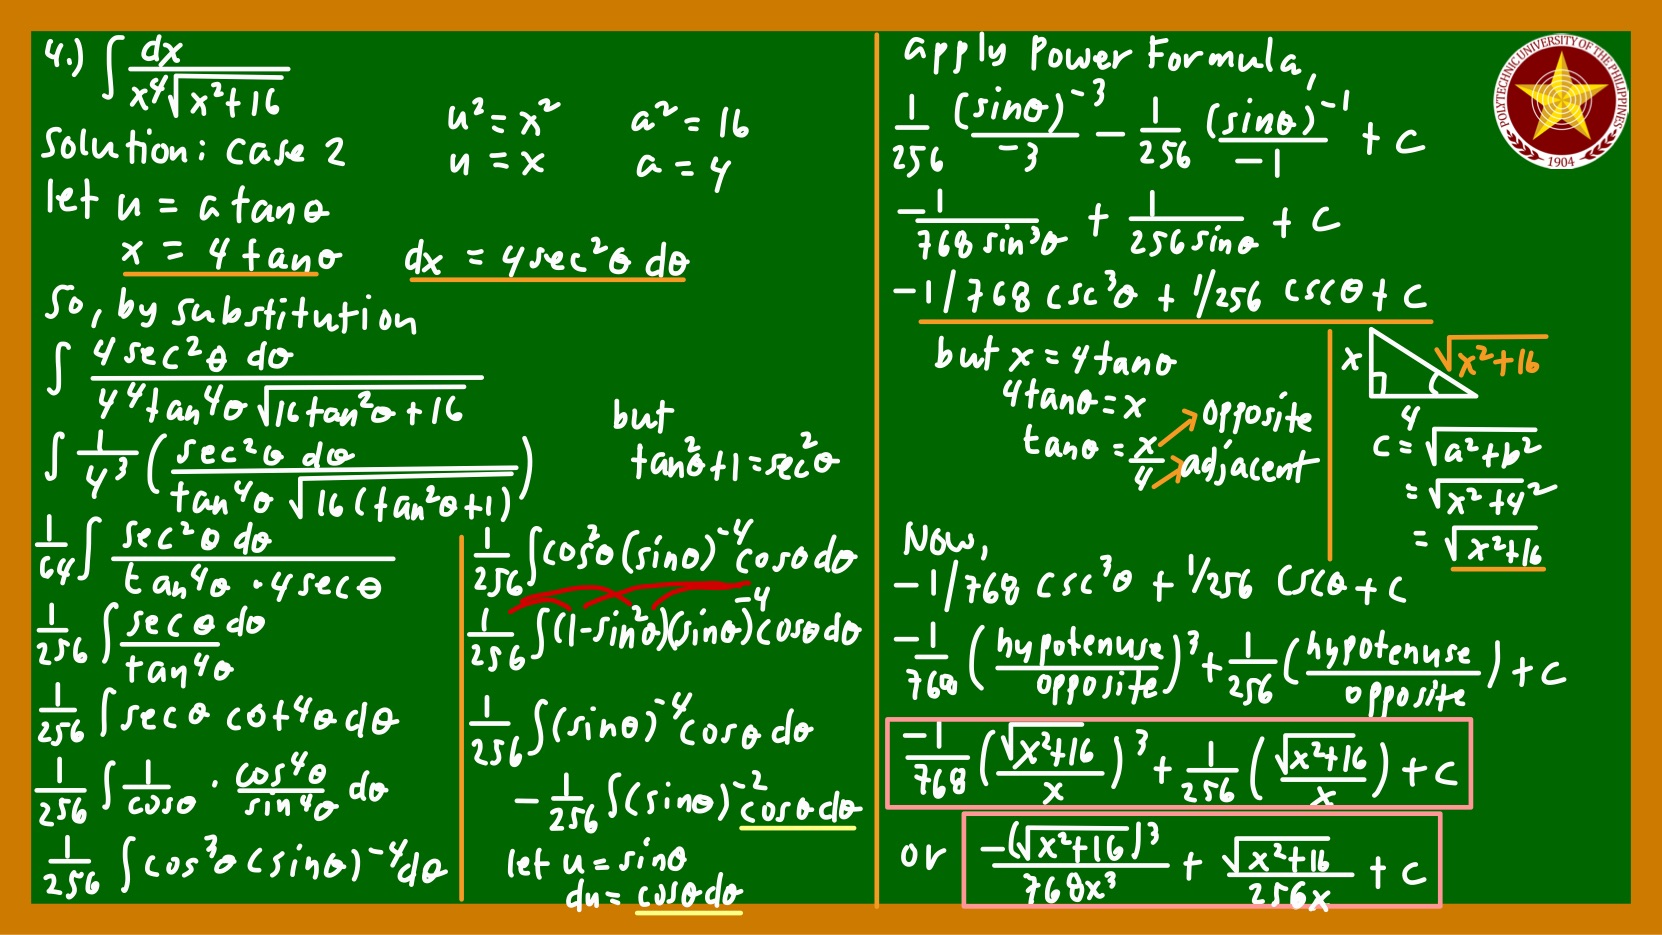 4.) ∫ dx / x⁴√(x²+16)
u² = x²   a² = 16
u = x   a = 4
Solution: Case 2
let u = a tanθ
x = 4 tanθ   dx = 4sec²θ dθ
So, by substitution
∫ 4 sec²θ dθ / 4⁴tan⁴θ √(16tan²θ + 16)
∫ 1/4³ ( sec²θ dθ / tan⁴θ √(16(tan²θ+1)) )
but
tan²θ+1 = sec²θ
1/64 ∫ sec²θ dθ / tan⁴θ · 4secθ
1/256 ∫ secθ dθ / tan⁴θ
1/256 ∫ secθ cot⁴θ dθ
1/256 ∫ 1/cosθ · cos⁴θ/sin⁴θ dθ
1/256 ∫ cos³θ (sinθ)⁻⁴ dθ
1/256 ∫ cos²θ (sinθ)⁻⁴ cosθ dθ
1/256 ∫ (1-sin²θ)(sinθ)⁻⁴ cosθ dθ
1/256 ∫ (sinθ)⁻⁴ cosθ dθ
- 1/256 ∫ (sinθ)⁻² cosθ dθ
let u = sinθ
du = cosθ dθ
apply Power Formula,
1/256 (sinθ)⁻³/-3 - 1/256 (sinθ)⁻¹/-1 + C
-1/768 sin³θ + 1/256 sinθ + C
-1/768 csc³θ + 1/256 cscθ + C
but x = 4tanθ
4tanθ = x
tanθ = x/4
opposite
adjacent
x
√(x²+16)
4
c = √(a²+b²)
= √(x²+4²)
= √(x²+16)
Now,
-1/768 csc³θ + 1/256 cscθ + C
-1/768 (hypotenuse/opposite)³ + 1/256 (hypotenuse/opposite) + C
-1/768 (√(x²+16)/x)³ + 1/256 (√(x²+16)/x) + C
or -(√(x²+16))³/768x³ + √(x²+16)/256x + C
POLYTECHNIC UNIVERSITY OF THE PHILIPPINES
1904